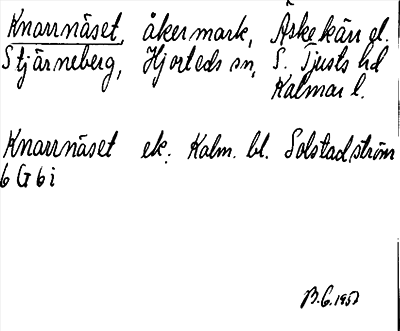 Knarrnäset, åkermark, Äskekärr el.
Stjärneberg, Hjorteds sn, S. Tjusts hd
Kalmar l.
Knarrnäset ek. Kalm. bl. Solstadström
6 G 6 i
B.G. 1952